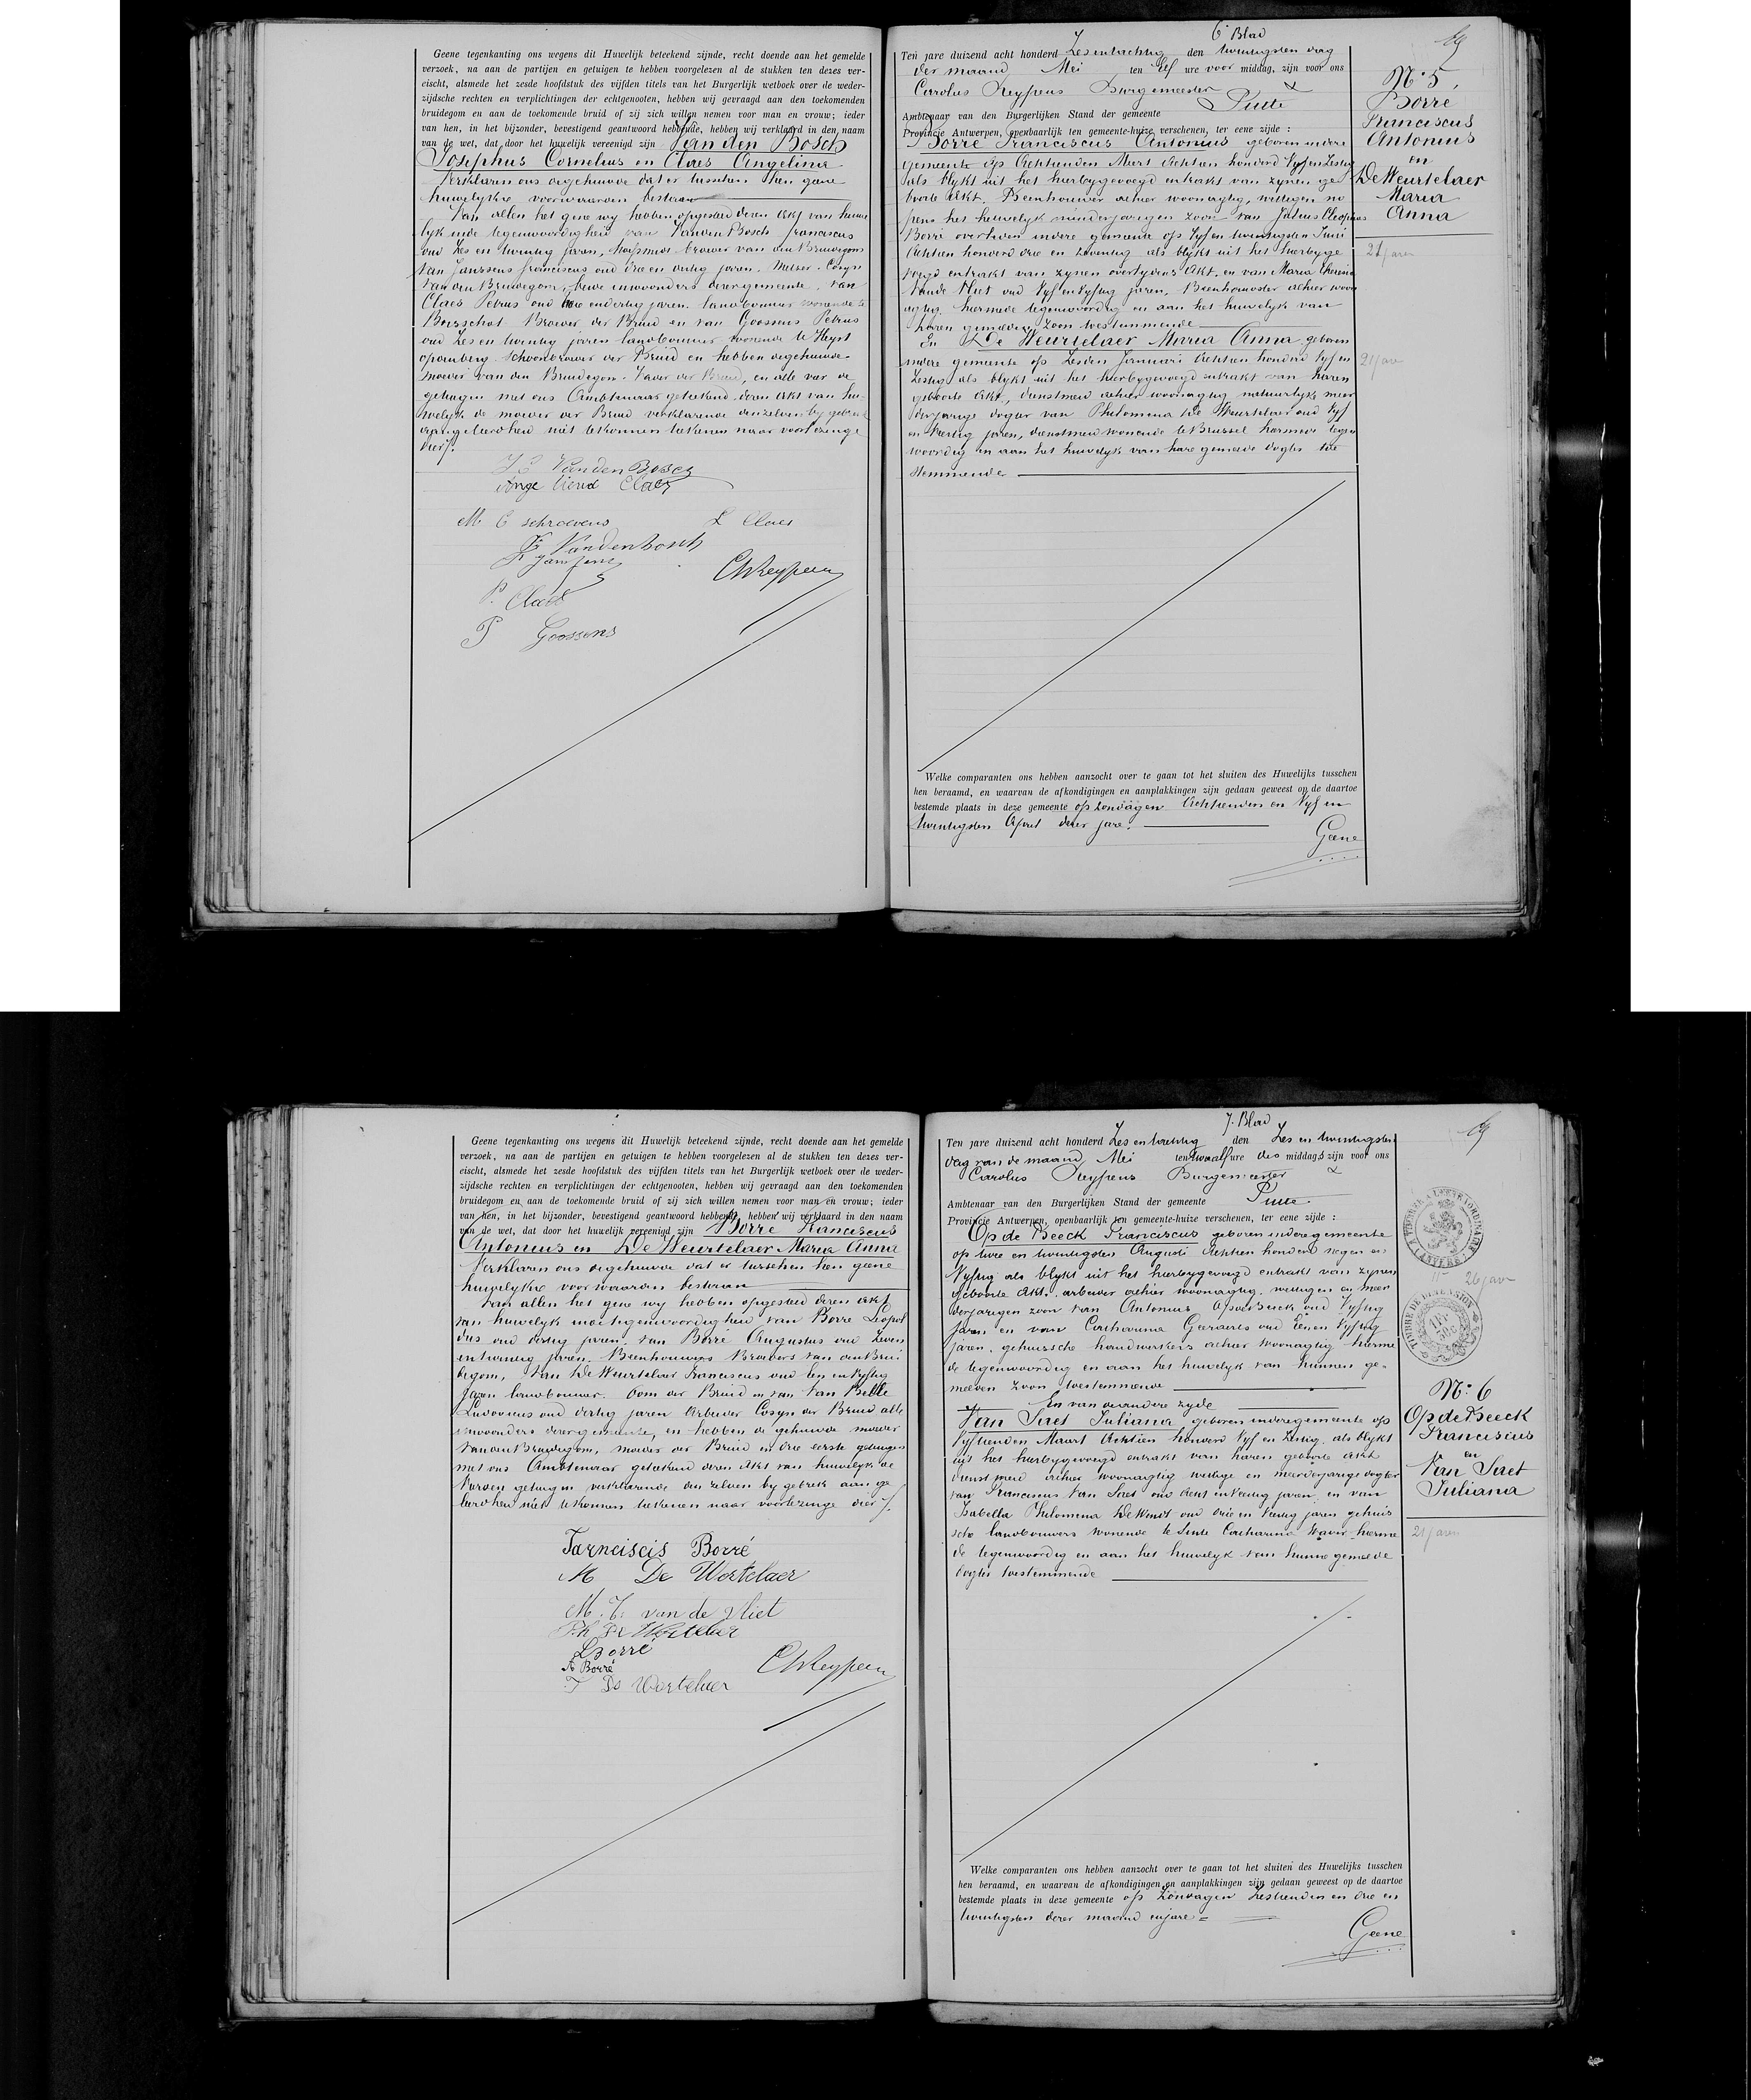 Geene tegenkanting ons wegens dit Huwelijk beteekend zijnde, recht doende aan het gemelde
verzoek, na aan de partijen en getuigen te hebben voorgelezen al de stukken ten dezes ver-
eischt, alsmede het zesde hoofdstuk des vijfden titels van het Burgerlijk wetboek over de weder-
zijdsche rechten en verplichtingen der echtgenooten, hebben wij gevraagd aan den toekomenden
bruidegom en aan de toekomende bruid of zij zich willen nemen voor man en vrouw; ieder
van hen, in het bijzonder, bevestigend geantwoord hebbende, hebben wij verklaard in den naam
van de wet, dat door het huwelijk vereenigd zijn Van den Bosch
Josephus Cornelius en Claes Angelina
Verklaren ons degehuwde dat er tusschen hen geene
huwelyksche voorwaarden bestaan
Van allen het gene wy hebben opgesteld deren akt van huwe
lyk inde tegenwoordigheid van Vanden Bosch franciscus
oud Zes en twintig jaren, hoefsmid broeder van den Bruidegom
Van Janssens franciscus oud drie en dertig jaren, Metser, Cosyn
van den Bruidegom, beide inwoonders dezer gemeente, van
Claes Petrus oud drie endertig jaren landbouwer wonende te
Beerschot Broeder der Bruid en van Goossens Petrus
oud Zes en twintig jaren landbouwer wonende te Heyst
opdenberg schoonbroeder der Bruid en hebben degehuwde
moeder van den Bruidegom, Vader der Bruid, en alle vier de
getuigen met ons Ambtenaar geteekend deren akt van hu
welyk de moeder der Bruid verklarende denzelven by gebrek
aangeleerdheid niet tekonnen teekenen naar voorlezinge
dier/.
J C Van den Bosch
Ange liena Claes
M C schroevens L Claes
F Vandenbosch
F Janssens
CHReypens
P. Claes
P Goossens
6e Blad
Ten jare duizend acht honderd Zes entachtig den twintigsten dag
der maand Mei ten Elf ure voor middag, zijn voor ons
Carolus Reypens Burgemeester &
Ambtenaar van den Burgerlijken Stand der gemeente Putte
Provincie Antwerpen, openbaarlijk ten gemeente-huize verschenen, ter eene zijde :
Borré Franciscus Antonius geboren indere
gemeente op Achtienden Maart Achtien honderd Vyf en Zestig
als blykt uit het hierbygevoegd extrakt van zynen ge
boorte Akt. Beenhouwer alhier woonagtig, wettigen no
pens het huwelyk minderjarigen zoon van Julius Cleophas
Borré overleden indere gemeente op Vyf en twintigsten Juni
Achtien honderd drie en Zeventig als blykt uit het hierbyge
voegd extrakt van zynen overlydens Akt. en van Maria Theresia
Vande Vliet oud Vyf en Vyftig jaren, Beenhouwster alhier woon
agtig, hiermede tegenwoordig en aan het huwelyk van
haren gemelden zoon toestemmende
En De Weurtelaer Maria Anna geboren
indere gemeente op Zesden Januari Achtien honderd Vyf en
Zestig als blykt uit het hierbygevoegd extrakt van haren
geboorte Akt, dienstmeid alhier woonagtig natuurlyke meer
derjarige dogter van Philomena De Weurtelaer oud Vyf
en Veertig jaren, dienstmeid wonende te Brussel hiermede tegen
woordig en aan het huwelyk van hare gemelde dogter toe
stemmende
Welke comparanten ons hebben aanzocht over te gaan tot het sluiten des Huwelijks tusschen
hen beraamd, en waarvan de afkondigingen en aanplakkingen zijn gedaan geweest op de daartoe
bestemde plaats in deze gemeente op Zondagen Achtienden en Vyf en
twintigsten April dezer jare.
Geene
No 5.
Borré
Franciscus
Antonius
en
De Weurtelaer
Maria
Anna
21 jaren
21 jare
Geene tegenkanting ons wegens dit Huwelijk beteekend zijnde, recht doende aan het gemelde
verzoek, na aan de partijen en getuigen te hebben voorgelezen al de stukken ten dezes ver-
eischt, alsmede het zesde hoofdstuk des vijfden titels van het Burgerlijk wetboek over de weder-
zijdsche rechten en verplichtingen der echtgenooten, hebben wij gevraagd aan den toekomenden
bruidegom en aan de toekomende bruid of zij zich willen nemen voor man en vrouw; ieder
van hen, in het bijzonder, bevestigend geantwoord hebbende, hebben wij verklaard in den naam
van de wet, dat door het huwelijk vereenigd zijn Borré Franciscus
Antonius en De Weurtelaer Maria Anna
Verklaren ons degehuwde dat er tusschen hen geene
huwelyksche voorwaarden bestaan
Van allen het gene wy hebben opgesteld deren akt
van huwelyk inde tegenwoordigheid van Borré Leopol
dus oud dertig jaren, van Borré Augustus oud Zeven
entwintig jaren, Beenhouwers Broeders van den Brui
degom, Van De Weurtelaer Franciscus oud Een en Vyftig
jaren landbouwer, Oom der Bruid en van Van Belle
Ludovicus oud dertig jaren Arbeider Cosyn der Bruid alle
inwoonders dezer gemeente, en hebben de gehuwde moeder
van den Bruidegom, moeder der Bruid en drie eerste getuigen
met ons Ambtenaar geteekend deren Akt van huwelyk de
Vierden getuigen verklarende den zelven by gebrek aan ge
leerdheid niet te konnen teekenen naar voorlezinge dier/.
Farneiscis Borré
M De Wertelaer
M. T. van de Vliet
Ph De Wertelaer
L Borré
A Borré
CHReypens
F De Wertelaer
7. Blad
Ten jare duizend acht honderd Zes entachtig den Zes en twintigsten
dag van de maand Mei ten twaalf ure des middags zijn voor ons
Carolus Reypens Burgemeester &
Ambtenaar van den Burgerlijken Stand der gemeente Putte
Provincie Antwerpen, openbaarlijk ten gemeente-huize verschenen, ter eene zijde :
Op de Beeck Franciscus geboren inderegemeente
op twee en twintigsten Augusti Achtien honderd negen en
Vyftig als blykt uit het hierbygevoegd extrakt van zynen
geboorte Akt, arbeider alhier woonagtig, wettigen en meer
derjarigen zoon van Antonius Opdebeeck oud Vyftig
jaren en van Catharina Geeraerts oud Eenen Vyftig
jaren, gehuwde handwerkers alhier woonagtig hierme
de tegenwoordig en aan het huwelyk van hunnen ge
melden zoon toestemmende
En van de andere zyde
Van Saet Juliana geboren inderegemeente op
Vyftienden Maart Achtien honderd Vyf en Zestig, als blykt
uit het hierbygevoegd extrakt van haren geboorte Akt
dienst meid alhier woonagtig wettige en meerderjarige dogter
van Franciscus Van Saet oud Acht en Veertig jaren, en van
Isabella Philomena De Windt oud drie en Veertig jaren gehuws
sche landbouwers wonende te Sinte Catharina Waver hierme
de tegenwoordig en aan het huwelyk van hunne gemelde
dogter toestemmende
Welke comparanten ons hebben aanzocht over te gaan tot het sluiten des Huwelijks tusschen
hen beraamd, en waarvan de afkondigingen en aanplakkingen zijn gedaan geweest op de daartoe
bestemde plaats in deze gemeente op Zondagen Zestienden en drie en
twintigsten dezer maand en jare
Geene
TIMBRE DE DIMENSION
26 jaren
No 6
Op de Beeck
Franciscus
en
Van Saet
Juliana
21 jaren